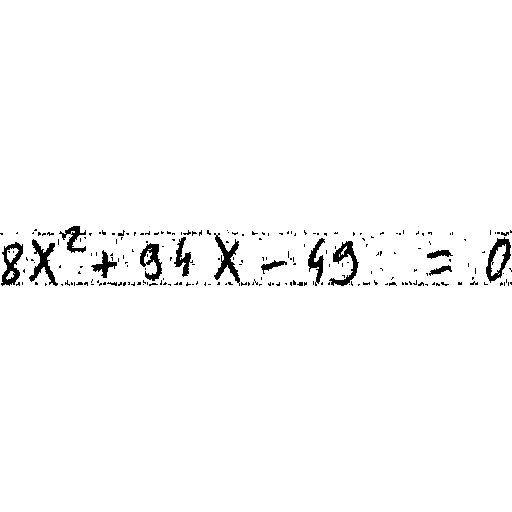 8X² + 94X - 49 = 0